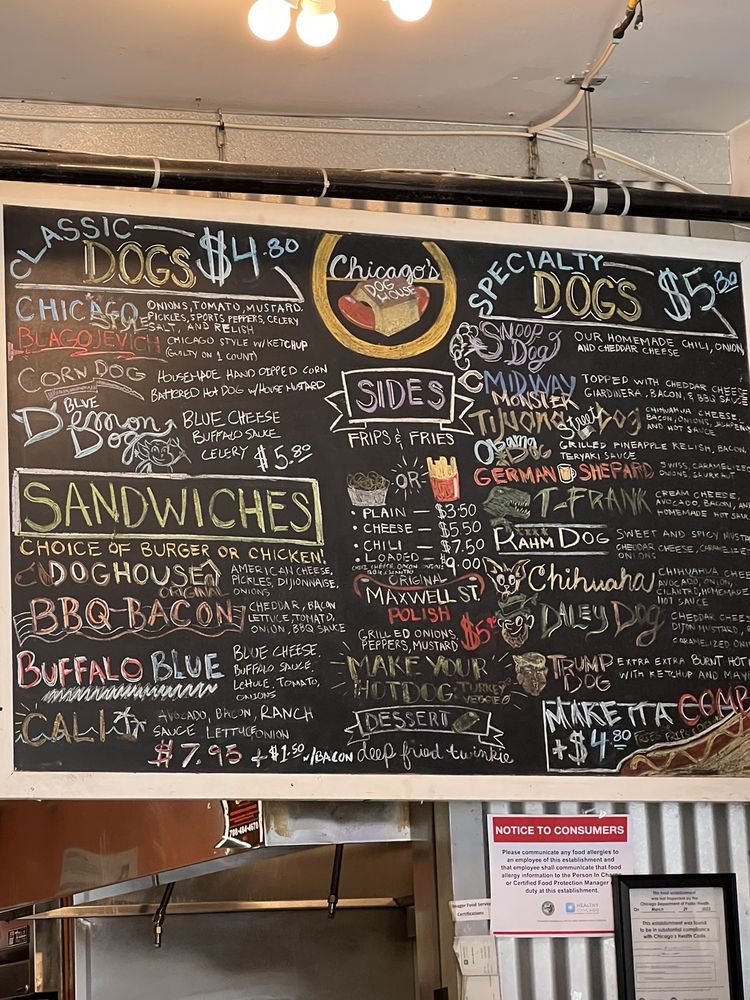 CLASSIC
DOGS $4.80
CHICAGO STYLE ONIONS, TOMATO, MUSTARD,
PICKLES, SPORTS PEPPERS, CELERY
SALT, AND RELISH
BLAGOJEVICH CHICAGO STYLE W/KETCHUP
(GUILTY ON 1 COUNT)
CORN DOG HOUSEMADE HAND DIPPED CORN
BATTERED HOT DOG W/HOUSE MUSTARD
BLUE
Demon Dog BLUE CHEESE
BUFFALO SAUCE
CELERY $5.80
SANDWICHES
CHOICE OF BURGER OR CHICKEN!
ORIGINAL DOGHOUSE AMERICAN CHEESE,
PICKLES, DIJONNAISE,
ONIONS
BBQ-BACON CHEDDAR, BACON
LETTUCE, TOMATO,
ONION, BBQ SAUCE
BUFFALO BLUE BLUE CHEESE,
BUFFALO SAUCE,
LETTUCE, TOMATO,
ONIONS
CALI AVOCADO, BACON, RANCH
SAUCE, LETTUCE, ONION
$7.95 +$1.50 w/BACON
Chicago's
DOG
HOUSE
SIDES
FRIPS & FRIES
-OR-
• PLAIN — $3.50
• CHEESE — $5.50
• CHILI — $7.50
• LOADED — $9.00
ORIGINAL
MAXWELL ST.
POLISH
GRILLED ONIONS,
PEPPERS, MUSTARD
MAKE YOUR
HOTDOG TURKEY
VEGGIE
DESSERT
deep fried twinkie
SPECIALTY
DOGS $5.80
SNOOP
Dog OUR HOMEMADE CHILI, ONION
AND CHEDDAR CHEESE
MIDWAY
MONSTER TOPPED WITH CHEDDAR CHEESE
GIARDINERA, BACON, & BBQ SAUCE
Tijuana Street Dog CHIHUAHUA CHEESE,
BACON, ONIONS, JALAPENO
AND HOT SAUCE
Obama
Dog GRILLED PINEAPPLE RELISH, BACON,
TERYAKI SAUCE
GERMAN SHEPARD SWISS, CARAMELIZED
ONIONS, SAURKRAUT
T-FRANK CREAM CHEESE,
AVOCADO, BACON, AND
HOMEMADE HOT SAUCE
RAHM DOG SWEET AND SPICY MUSTA
CHEDDAR CHEESE, CARAMELIZE
ONIONS
Chihuahua CHIHUAHUA CHEESE
AVOCADO, ONION,
CILANTRO, HOMEMADE
HOT SAUCE
DALEY Dog CHEDDAR CHEESE
MUSTARD,
CARAMELIZED ONI
TRUMP
DOG EXTRA EXTRA BURNT HOT
WITH KETCHUP AND MAYO
MAKE IT A COMB
+$4.80
NOTICE TO CONSUMERS
Please communicate any food allergies to
an employee of this establishment and
that employee shall communicate that food
allergy information to the Person In Charge
or Certified Food Protection Manager
duty at this establishment.
HEALTHY
CHICAGO
Food Service
Certifications
This food establishment
was last inspected by the
Chicago Department of Public Health
On March
This establishment was found
to be in substantial compliance
with Chicago's Health Code.